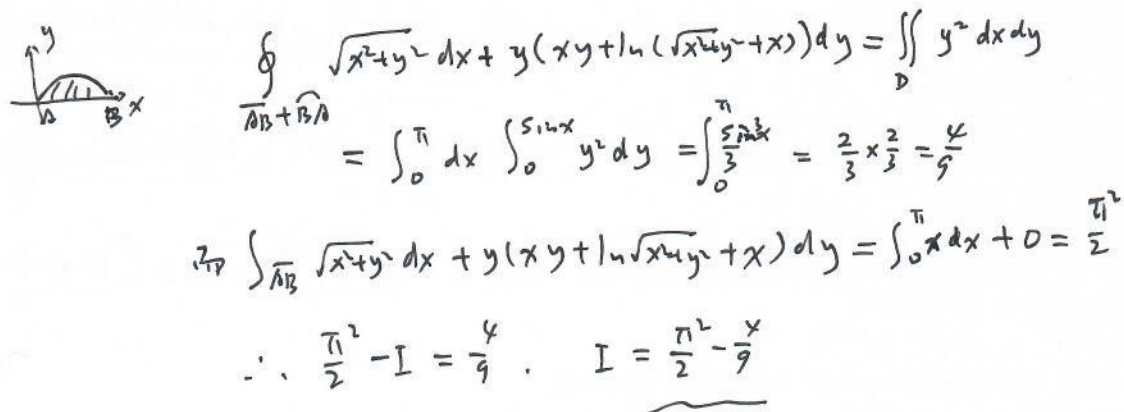 y
A B x
∮_{\overline{AB}+\overset{\frown}{BA}} √(x²+y²) dx + y(xy+ln(√(x²+y²)+x))dy = ∬_D y² dxdy
= ∫_0^π dx ∫_0^{sinx} y² dy = ∫_0^π \frac{sin³x}{3} = 2/3 × 2/3 = 4/9
而 ∫_{\overline{AB}} √(x²+y²) dx + y(xy+ln√(x²+y²)+x)dy = ∫_0^π x dx + 0 = π²/2
∴ π²/2 - I = 4/9 . I = π²/2 - 4/9